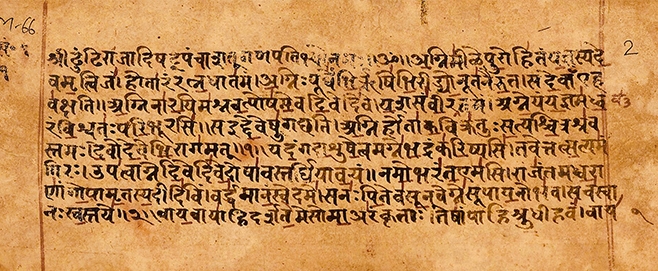 ॥ॐ॥ अग्निमीळे पुरोहितं यज्ञस्य दे
वमृत्विजं । होतारं रत्नधातमं । अग्निः पूर्वेभिर्ऋषिभिरीड्यो नूतनैरुत । स देवाँ एह
वक्षति ॥ अग्निना रयिमश्नवत्पोषमेव दिवेदिवे । यशसं वीरवत्तमं । अग्ने यं यज्ञमध्व
रं विश्वतः परिभूरसि । स इद्देवेषु गच्छति । अग्निर्होता कविक्रतुः सत्यश्चित्रश्रव
स्तमः । देवो देवेभिरागमत् ॥१॥ यदंग दाशुषे त्वमग्ने भद्रं करिष्यसि । तवेत्तत्सत्यमं
गिरः । उप त्वाग्ने दिवेदिवे दोषावस्तर्धिया वयं । नमो भरंत एमसि । राजंतमध्वरा
णां गोपामृतस्य दीदिविं । वर्धमानं स्वे दमे । स नः पितेव सूनवेग्ने सूपायनो भव । सचस्वा
नः स्वस्तये ॥२॥ वायवायाहि दर्शतेमे सोमा अरंकृताः । तेषां पाहि श्रुधी हवं । वाय
2